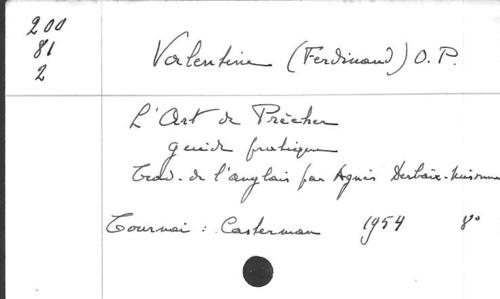 200
81
2
Valentine (Ferdinand) O.P.
L'Art de Prêcher
guide pratique
Trad. de l'anglais par Agnès Derbaix-
Tournai : Casterman 1954 8°